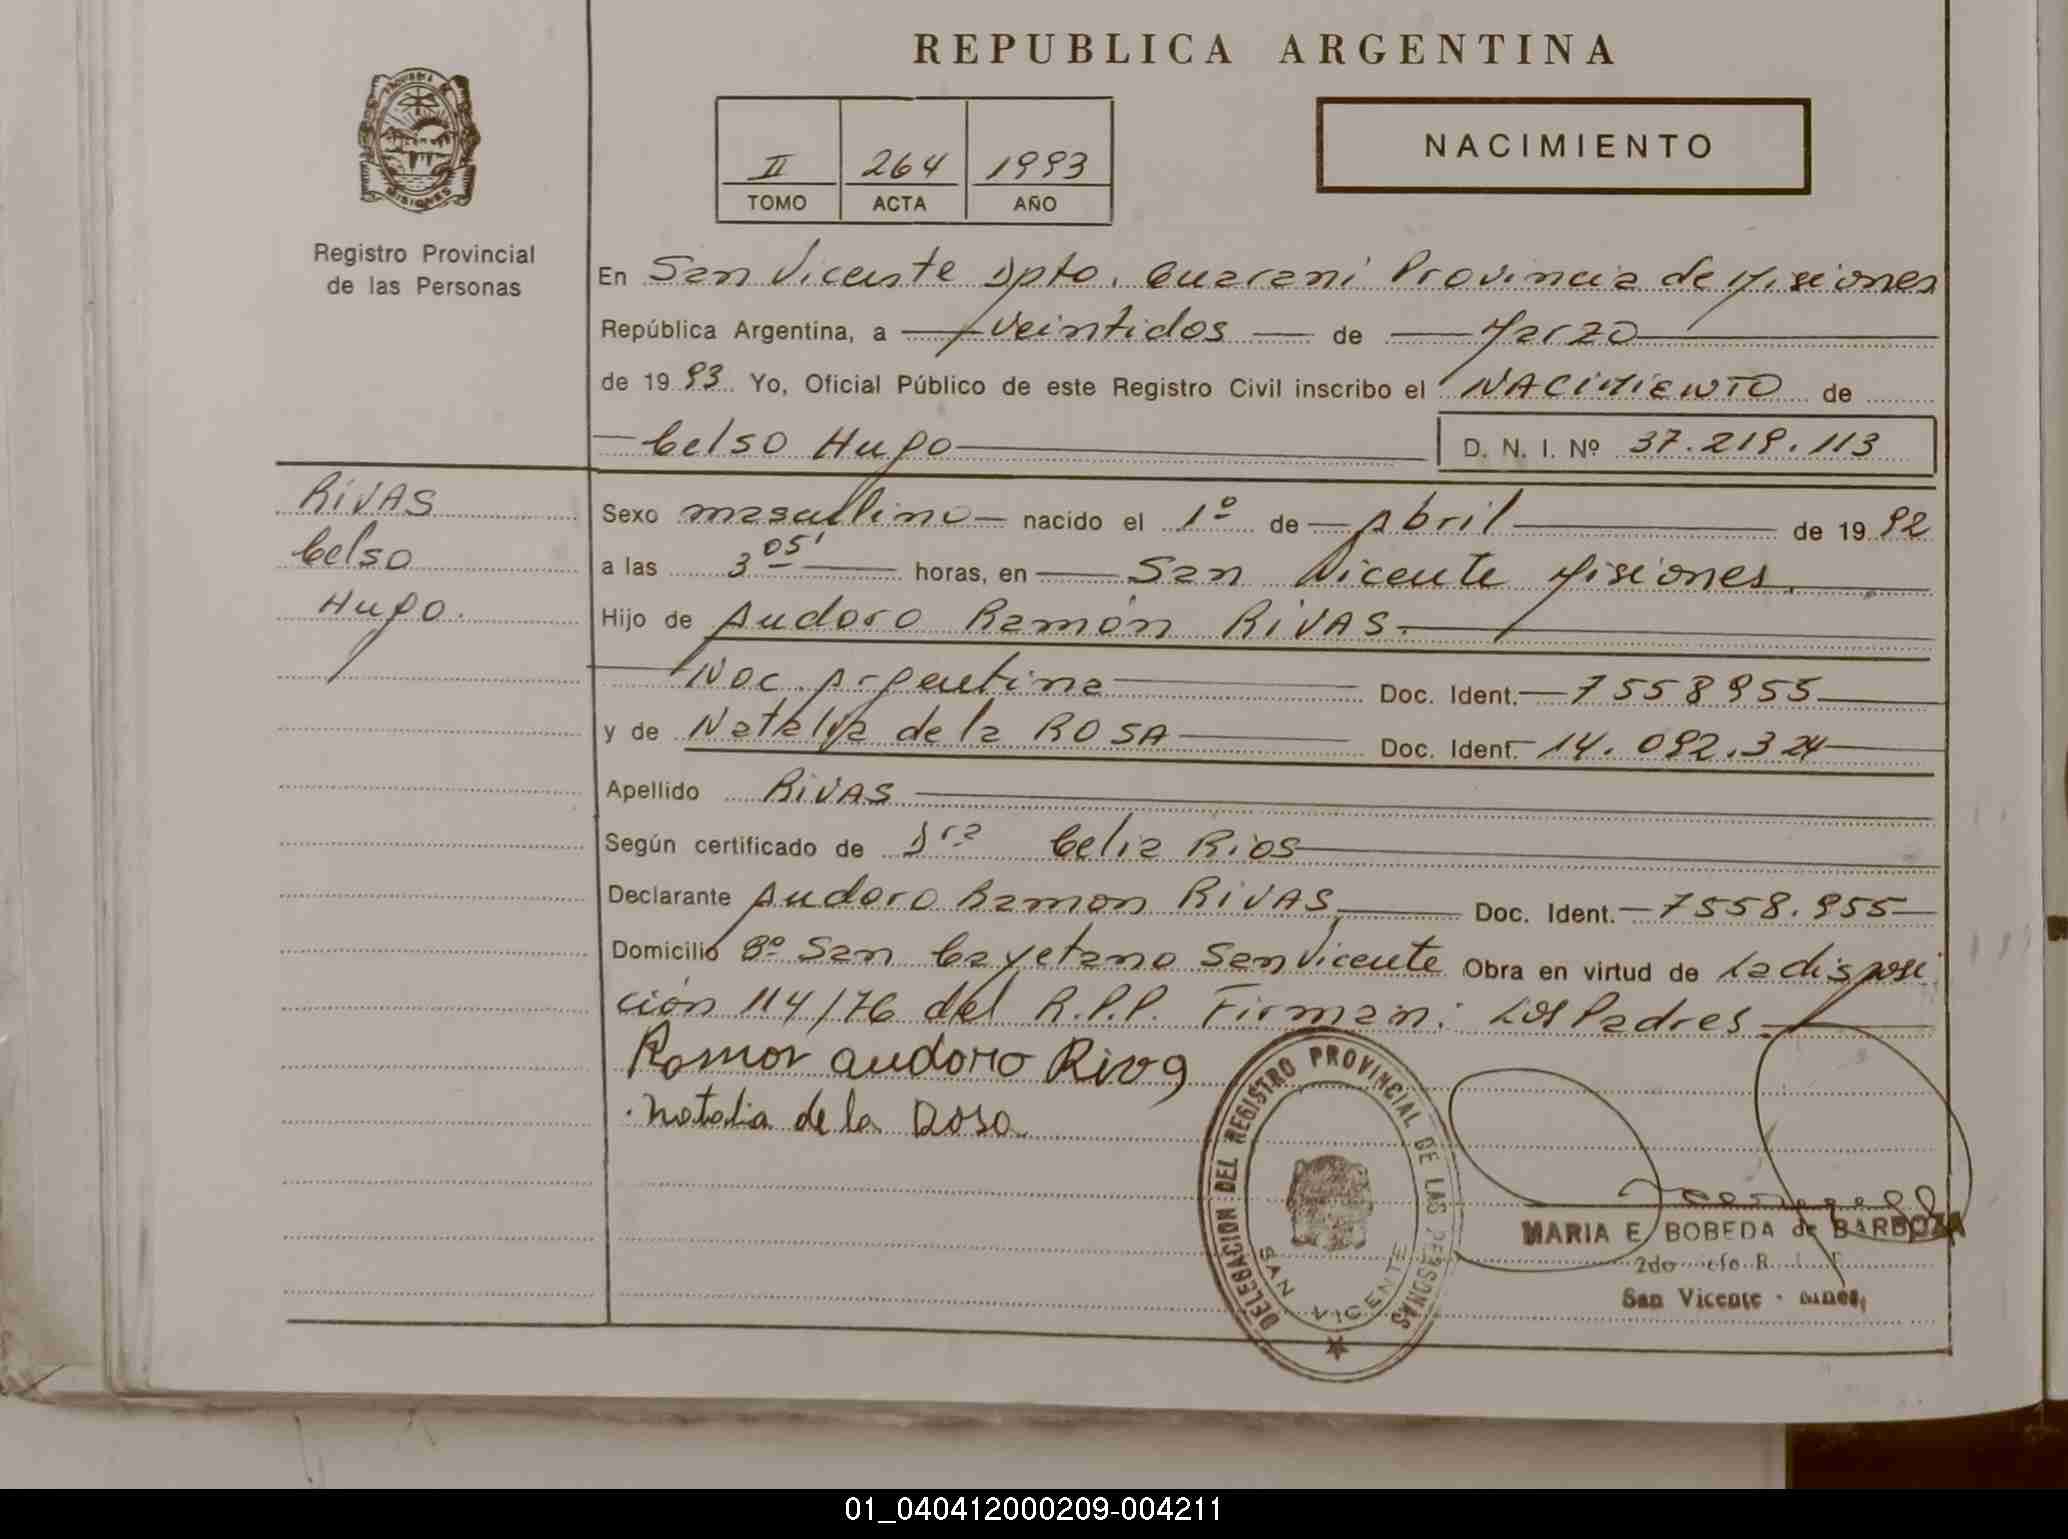 REPUBLICA ARGENTINA
NACIMIENTO
II 264 1993
TOMO ACTA AÑO
PROVINCIA
MISIONES
Registro Provincial
de las Personas
En San Vicente Dpto. Guarani Provincia de Misiones
República Argentina, a veintidos de Marzo
de 1993 Yo, Oficial Público de este Registro Civil inscribo el NACIMIENTO de
Celso Hugo D. N. I. Nº 37.219.113
RIVAS
Celso
Hugo.
Sexo masculino nacido el 1º de Abril de 1992
a las 3 05' horas, en San Vicente Misiones
Hijo de Audoro Ramón RIVAS.
Nac. Argentina Doc. Ident. 7558955
y de Natalya de la ROSA Doc. Ident. 14.092.324
Apellido RIVAS
Según certificado de Dra Celia Rios
Declarante Audoro Ramon RIVAS Doc. Ident. 7558.955
Domicilio Bº San Cayetano San Vicente Obra en virtud de la disposi
ción 114/76 del R.P.P. Firman: Los Padres
Ramor audoro Riva
Natalia de la Rosa
DELEGACION DEL REGISTRO PROVINCIAL DE LAS PERSONAS
SAN VICENTE
MARIA E. BOBEDA de BARBOZA
2do
San Vicente
01_040412000209-004211